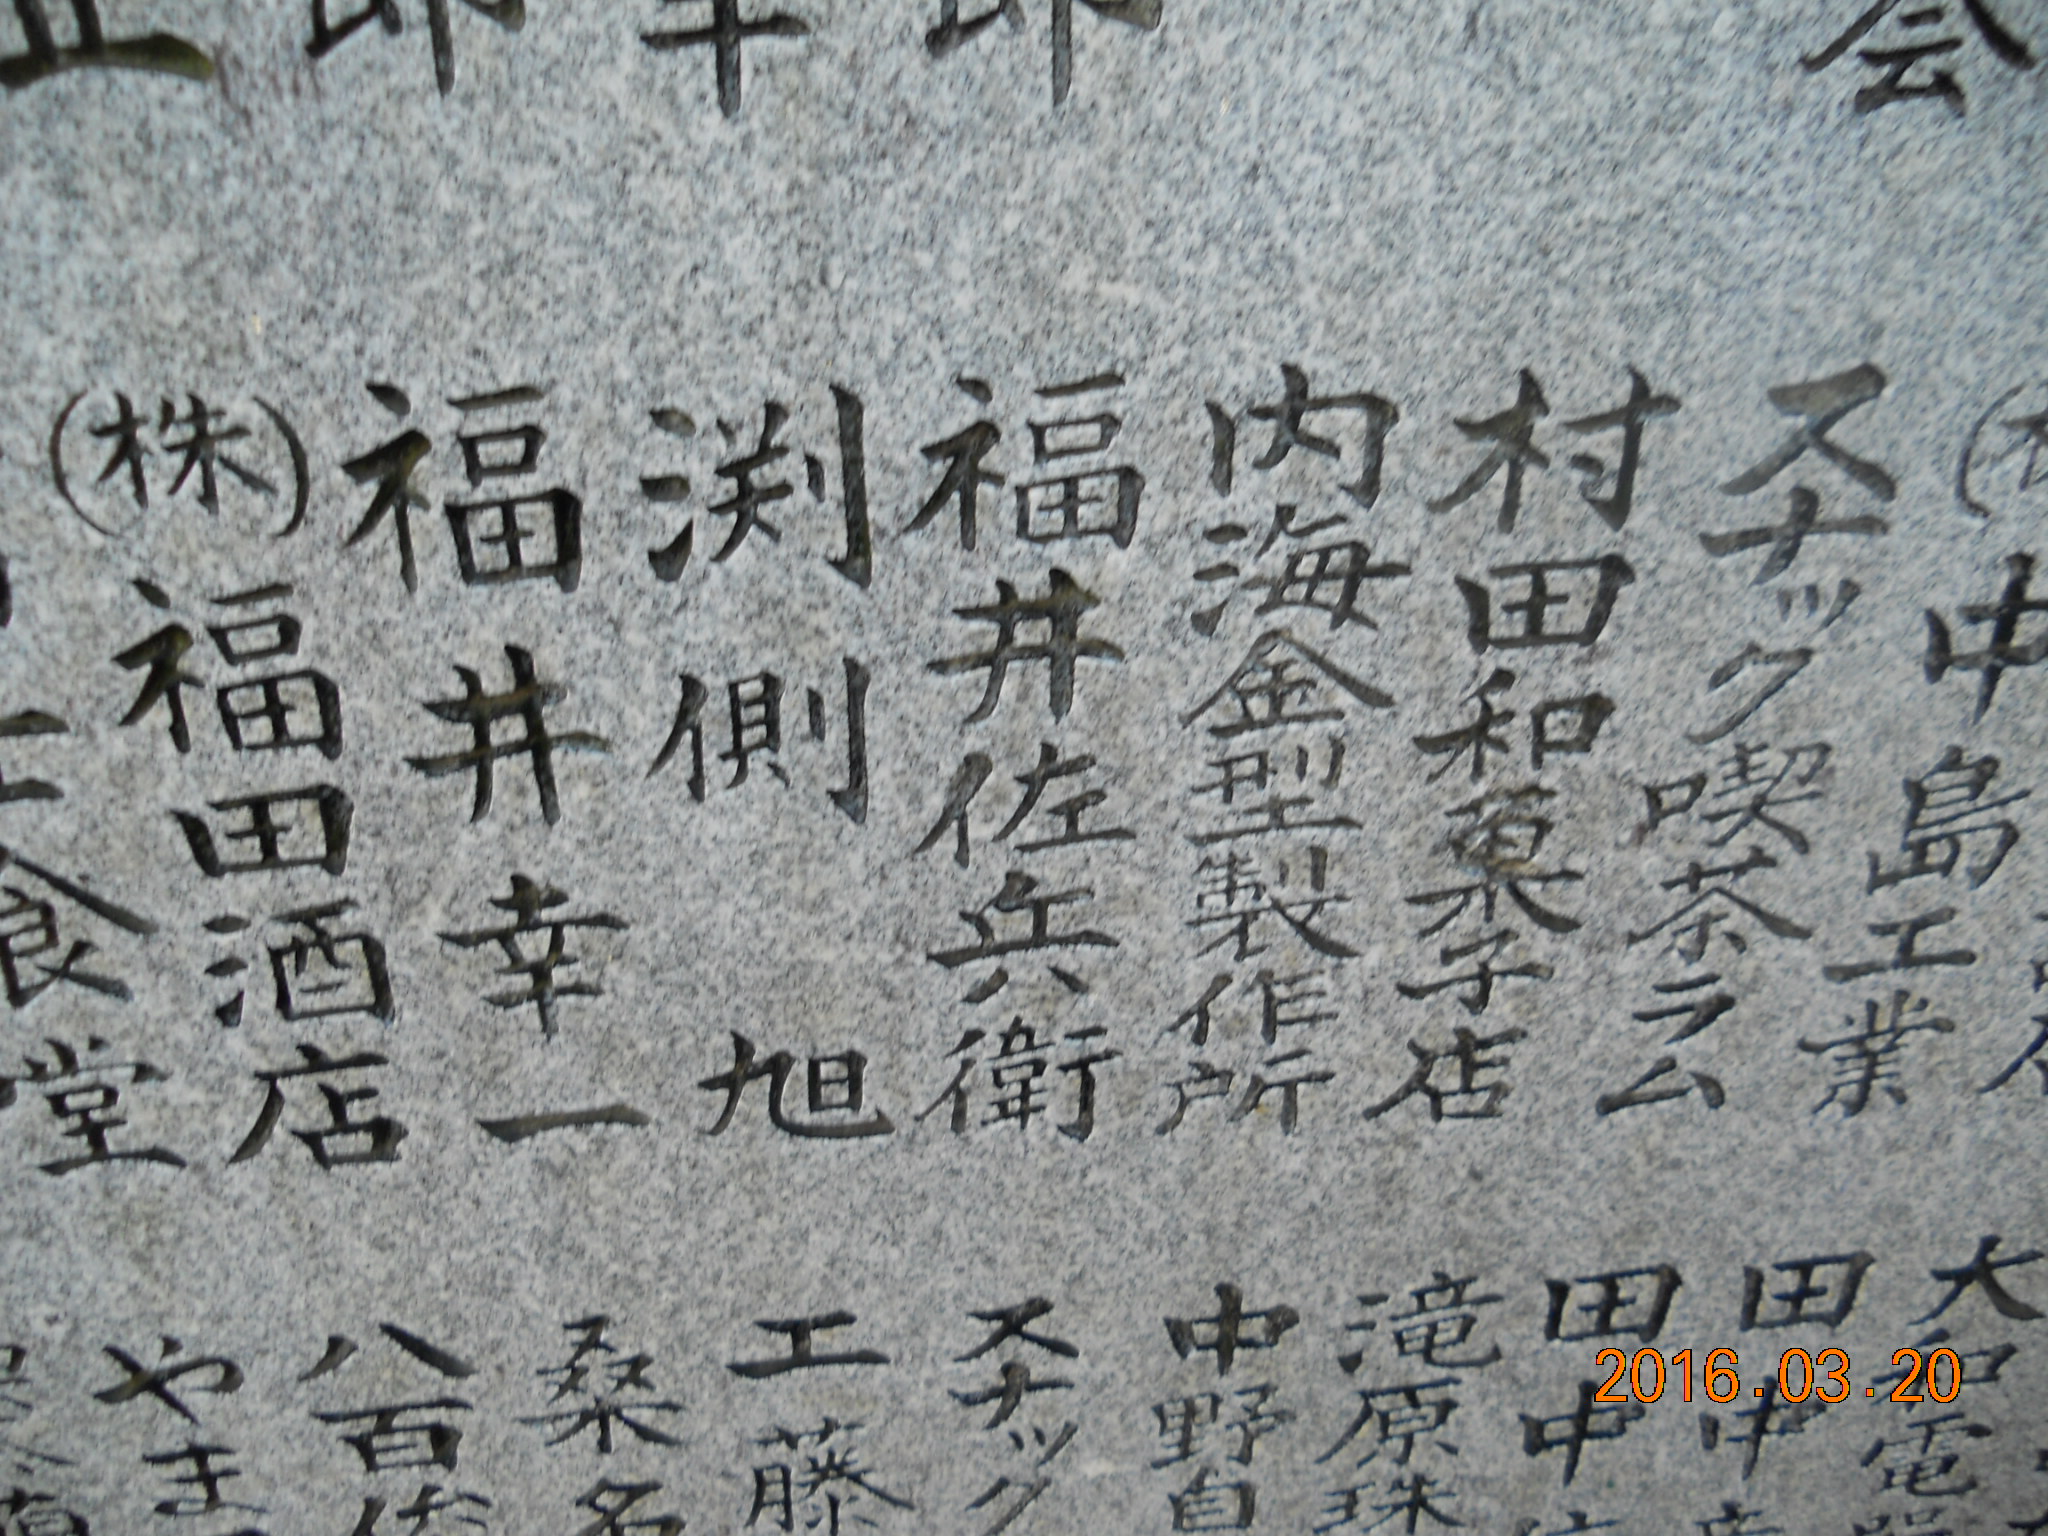 会
(株)中島工業
スナック喫茶ラム
村田和菓子店
内海金型製作所
福井佐兵衛
渕側旭
福井幸一
(株)福田酒店
食堂
大和電器
田中
田中
滝原珠
中野自
スナック
工藤
桑名
八百
やま
2016.03.20